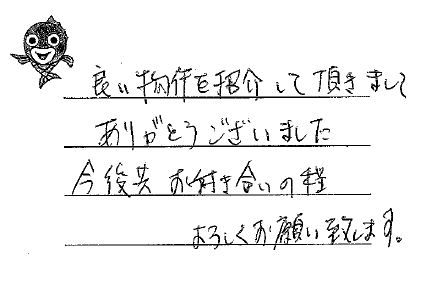 良い物件を紹介して頂きまして
ありがとうございました
今後共お付き合いの程
よろしくお願い致します。